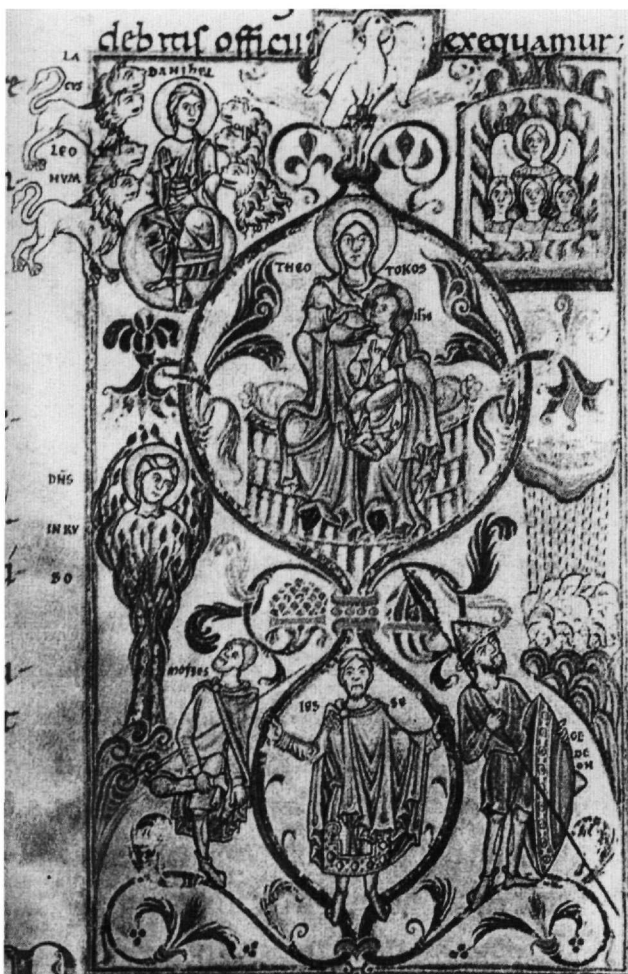 debitis officiis exequamur;
LA
CUS
LEO
NVM
DANIHEL
THEO TOKOS
ihs
DÑS
IN RV
BO
MOYSES
IES SE
GE
DE
ON